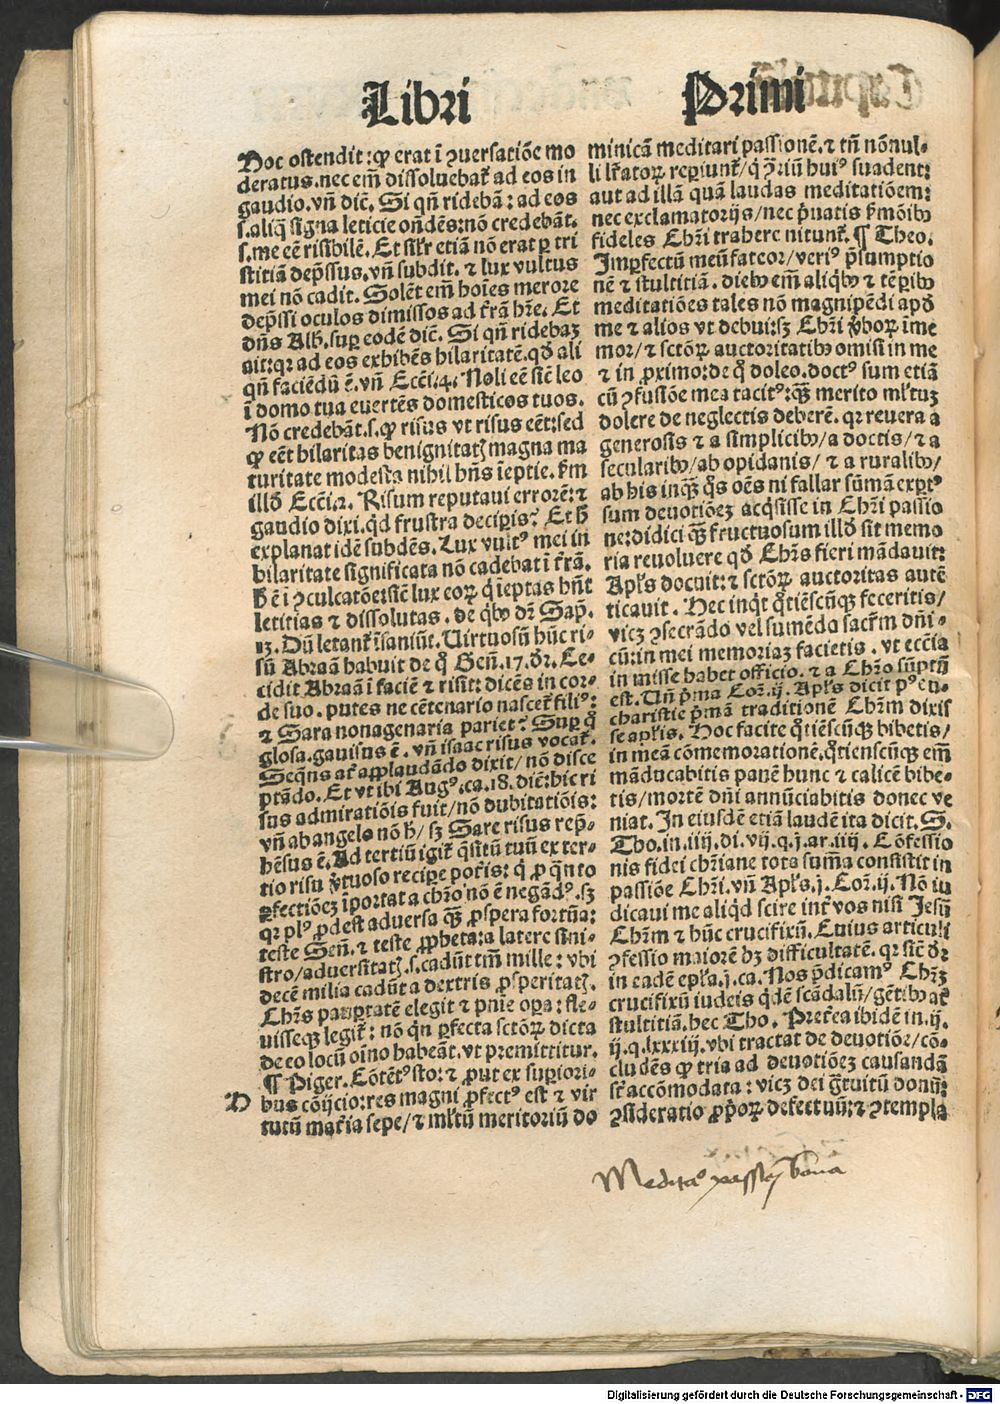 Libri Primi
Hoc ostendit: ꝙ erat ī ꝯuersatiōe mo
deratus. nec em̄ dissoluebat᷑ ad eos in
gaudio. vn̄ dic̄. Si qn̄ ridebā: ad eos
s. aliq̄ signa leticie on̄dēs: nō credebāt.
s. me eē risibilē. Et sil'r etiā nō erat ꝑ tri
stitiā dep̄ssus. vn̄ subdit. ⁊ lux vultus
mei nō cadit. Solēt em̄ hoīes merore
dep̄ssi oculos dimissos ad t̄rā hr̄e. Et
dn̄s Alb. suꝑ eodē dic̄. Si qn̄ ridebaꝫ
ait: qꝛ ad eos exhibēs hilaritatē. qd̄ ali
qn̄ faciēdū ē. vn̄ Ecc̄i. 4. Noli eē sic̄ leo
ī domo tua euertēs domesticos tuos.
Nō credebāt. s. ꝙ risus vt risus eēt: sed
ꝙ eēt hilaritas benignitatꝭ magna ma
turitate modesta nihil hn̄s īeptie. ẜm
illd̄ Ecc̄i. 2. Risum reputaui errorē: ⁊
gaudio dixi. qd̄ frustra deciꝑis? Et h̄
explanat idē subdēs. Lux vultꝰ mei in
hilaritate significata nō cadebat ī t̄rā.
h̄ ē ī ꝯculcatōe: sic̄ lux eoꝝ q̄ īeptas hn̄t
letitias ⁊ dissolutas. de q̄bꝰ dr̄ Sap̄.
13. Dū letant᷑ īsaniūt. Uirtuosū hūc ri-
sū Abraā habuit de q̊ Gen̄. 17. dr̄. Ce-
cidit Abraā ī faciē ⁊ risit: dicēs in cor-
de suo. putes ne cētenario nascet᷑ filiꝰ:
⁊ Sara nonagenaria pariet? Suꝑ q̊
glosa. gauisus ē. vn̄ isaac risus vocat᷑.
Seq̄ns at᷑ applaudādo dixit/ nō disce
ptādo. Et vt ibi Augꝰ. ca. 18. diē: hic ri
sus admiratiōis fuit/ nō dubitatiōis:
vn̄ ab angelo nō h̄/ sꝫ Sare risus rep̄-
hēsus ē. Ad tertiū igit᷑ q̄sitū tuū ex ter-
tio risu v̄tuoso recipe pot̄is: q̄ ꝓ qn̄to
ꝑfectiōeꝫ īportat a chr̄o nō ē negādꝰ. sꝫ
qꝛ plꝰ ꝓdest aduersa qꝫ ꝓspera fortūa:
teste Sen̄. ⁊ teste ꝓpheta: a latere sini-
stro/ aduersitatꝭ. s. cadūt tm̄ mille: vbi
decē milia cadūt a dextris ꝓsperitatꝭ.
Chr̄s pauꝑtatē elegit ⁊ pnīe oꝑa: fle-
uisseqꝫ legit᷑: nō qn̄ ꝑfecta sctōꝝ dicta
de eo locū oīno habeāt. vt premittitur.
¶ Piger. Cōtētꝰ sto: ⁊ ꝓut ex suꝑiori-
D bus cōijcio: res magni ꝓfectꝰ est ⁊ vir
tutū mat̄ia sepe/ ⁊ ml'tū meritoriū do
minicā meditari passionē. ⁊ tn̄ nōnul-
li lr̄atoꝝ reꝑiunt᷑/ q̄ ꝯ̄riū huiꝰ suadent:
aut ad illā quā laudas meditatiōem:
nec exclamatorijs/ nec p̄uatis ẜmōibꝰ
fideles Chr̄i trahere nitunt᷑. ¶ Theo.
Imꝑfectū meū fateor/ veriꝰ p̄sumptio
nē ⁊ stultitiā. diebꝰ em̄ aliq̄bꝰ ⁊ tēꝑibꝰ
meditatiōes tales nō magnipēdi apd̄
me ⁊ alios vt debui: sꝫ Chr̄i v̄boꝝ īme
mor/ ⁊ sctōꝝ auctoritatibꝰ omisi in me
⁊ in ꝓximo: de q̊ doleo. doctꝰ sum etiā
cū ꝯfusiōe mea tacitꝰ: qꝫ merito ml'tuꝫ
dolere de neglectis deberē. qꝛ reuera a
generosis ⁊ a simplicibꝰ/ a doctis/ ⁊ a
secularibꝰ/ ab opidanis/ ⁊ a ruralibꝰ/
ab his inqꝫ q̊s oēs ni fallar sūmā exꝑtꝰ
sum deuotiōeꝫ acq̄sisse in Chr̄i passio
ne: didici qꝫ fructuosum illd̄ sit memo
ria reuoluere qd̄ Chr̄s fieri mādauit:
Apl's docuit: ⁊ sctōꝝ auctoritas autē
ticauit. Hec inqt̄ q̊tiēscūqꝫ feceritis/
vicꝫ ꝯsecrādo vel sumēdo sacr̄m dn̄i-
cū: in mei memoriaꝫ facietis. vt eccīa
in misse habet officio. ⁊ a Chr̄o sūptū
est. Un̄ p̄ma Coꝝ. ij. Apl's dicit pꝰ eu-
charistie p̄mā traditionē Chr̄m dixis
se apl'is. Hoc facite q̊tiēscūqꝫ bibetis/
in meā cōmemorationē. q̊tienscūqꝫ em̄
māducabitis panē hunc ⁊ calicē bibe-
tis/ mortē dn̄i annūciabitis donec ve
niat. In eiusdē etiā laudē ita dicit. S.
Tho. in. iiij. di. vij. q. j. ar. iij. Cōfessio
nis fidei chr̄iane tota sum̄a consistit in
passiōe Chr̄i. vn̄ Apl's. j. Coꝝ. ij. Nō iu
dicaui me aliqd̄ scire int̄ vos nisi Jesū
Chr̄m ⁊ hūc crucifixū. Cuius articuli
ꝯfessio maiorē hꝫ difficultatē. qꝛ sic̄ dr̄
in eadē epl'a. j. ca. Nos p̄dicamꝰ Chr̄ꝫ
crucifixū iudeis qd̄ē scādalū/ gētibꝰ at᷑
stultitiā. hec Tho. Pret̄ea ibidē in. ij.
ij. q. lxxxiij. vbi tractat de deuotiōe/ cō-
cludēs ꝙ tria ad deuotiōeꝫ causandā
st᷑ accōmodata: vicꝫ dei gr̄tuitū donū:
ꝯsideratio ꝓpꝛoꝝ defectuū: ⁊ ꝯtempla
Digitalisierung gefördert durch die Deutsche Forschungsgemeinschaft - DFG